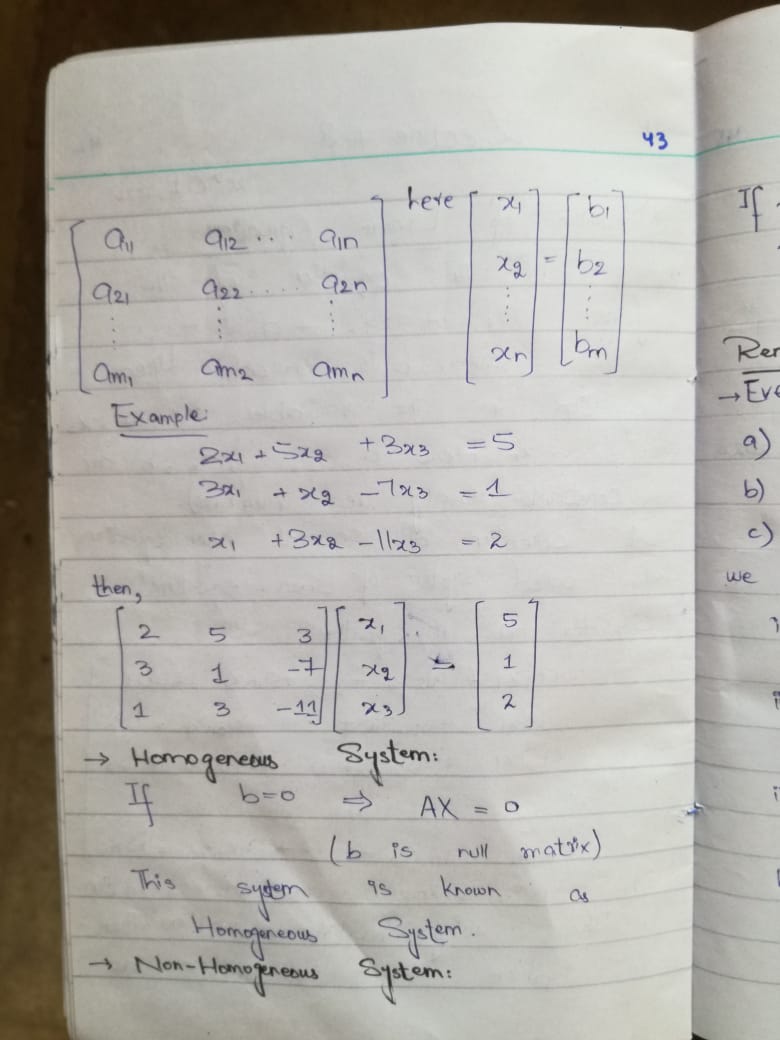 43
here
a11 a12 .... a1n x1 b1
a21 a22 .... a2n x2 = b2
⋮ ⋮ ⋮ ⋮ ⋮
am1 am2 amn xn bm
Example:
2x1 + 5x2 + 3x3 = 5
3x1 + x2 - 7x3 = 1
x1 + 3x2 - 11x3 = 2
then,
2 5 3 x1 5
3 1 -7 x2 = 1
1 3 -11 x3 2
→ Homogeneous System:
If b=0 ⇒ AX = 0
(b is null matrix)
This system is known as
Homogeneous System.
→ Non-Homogeneous System:
If
a)
b)
c)
we